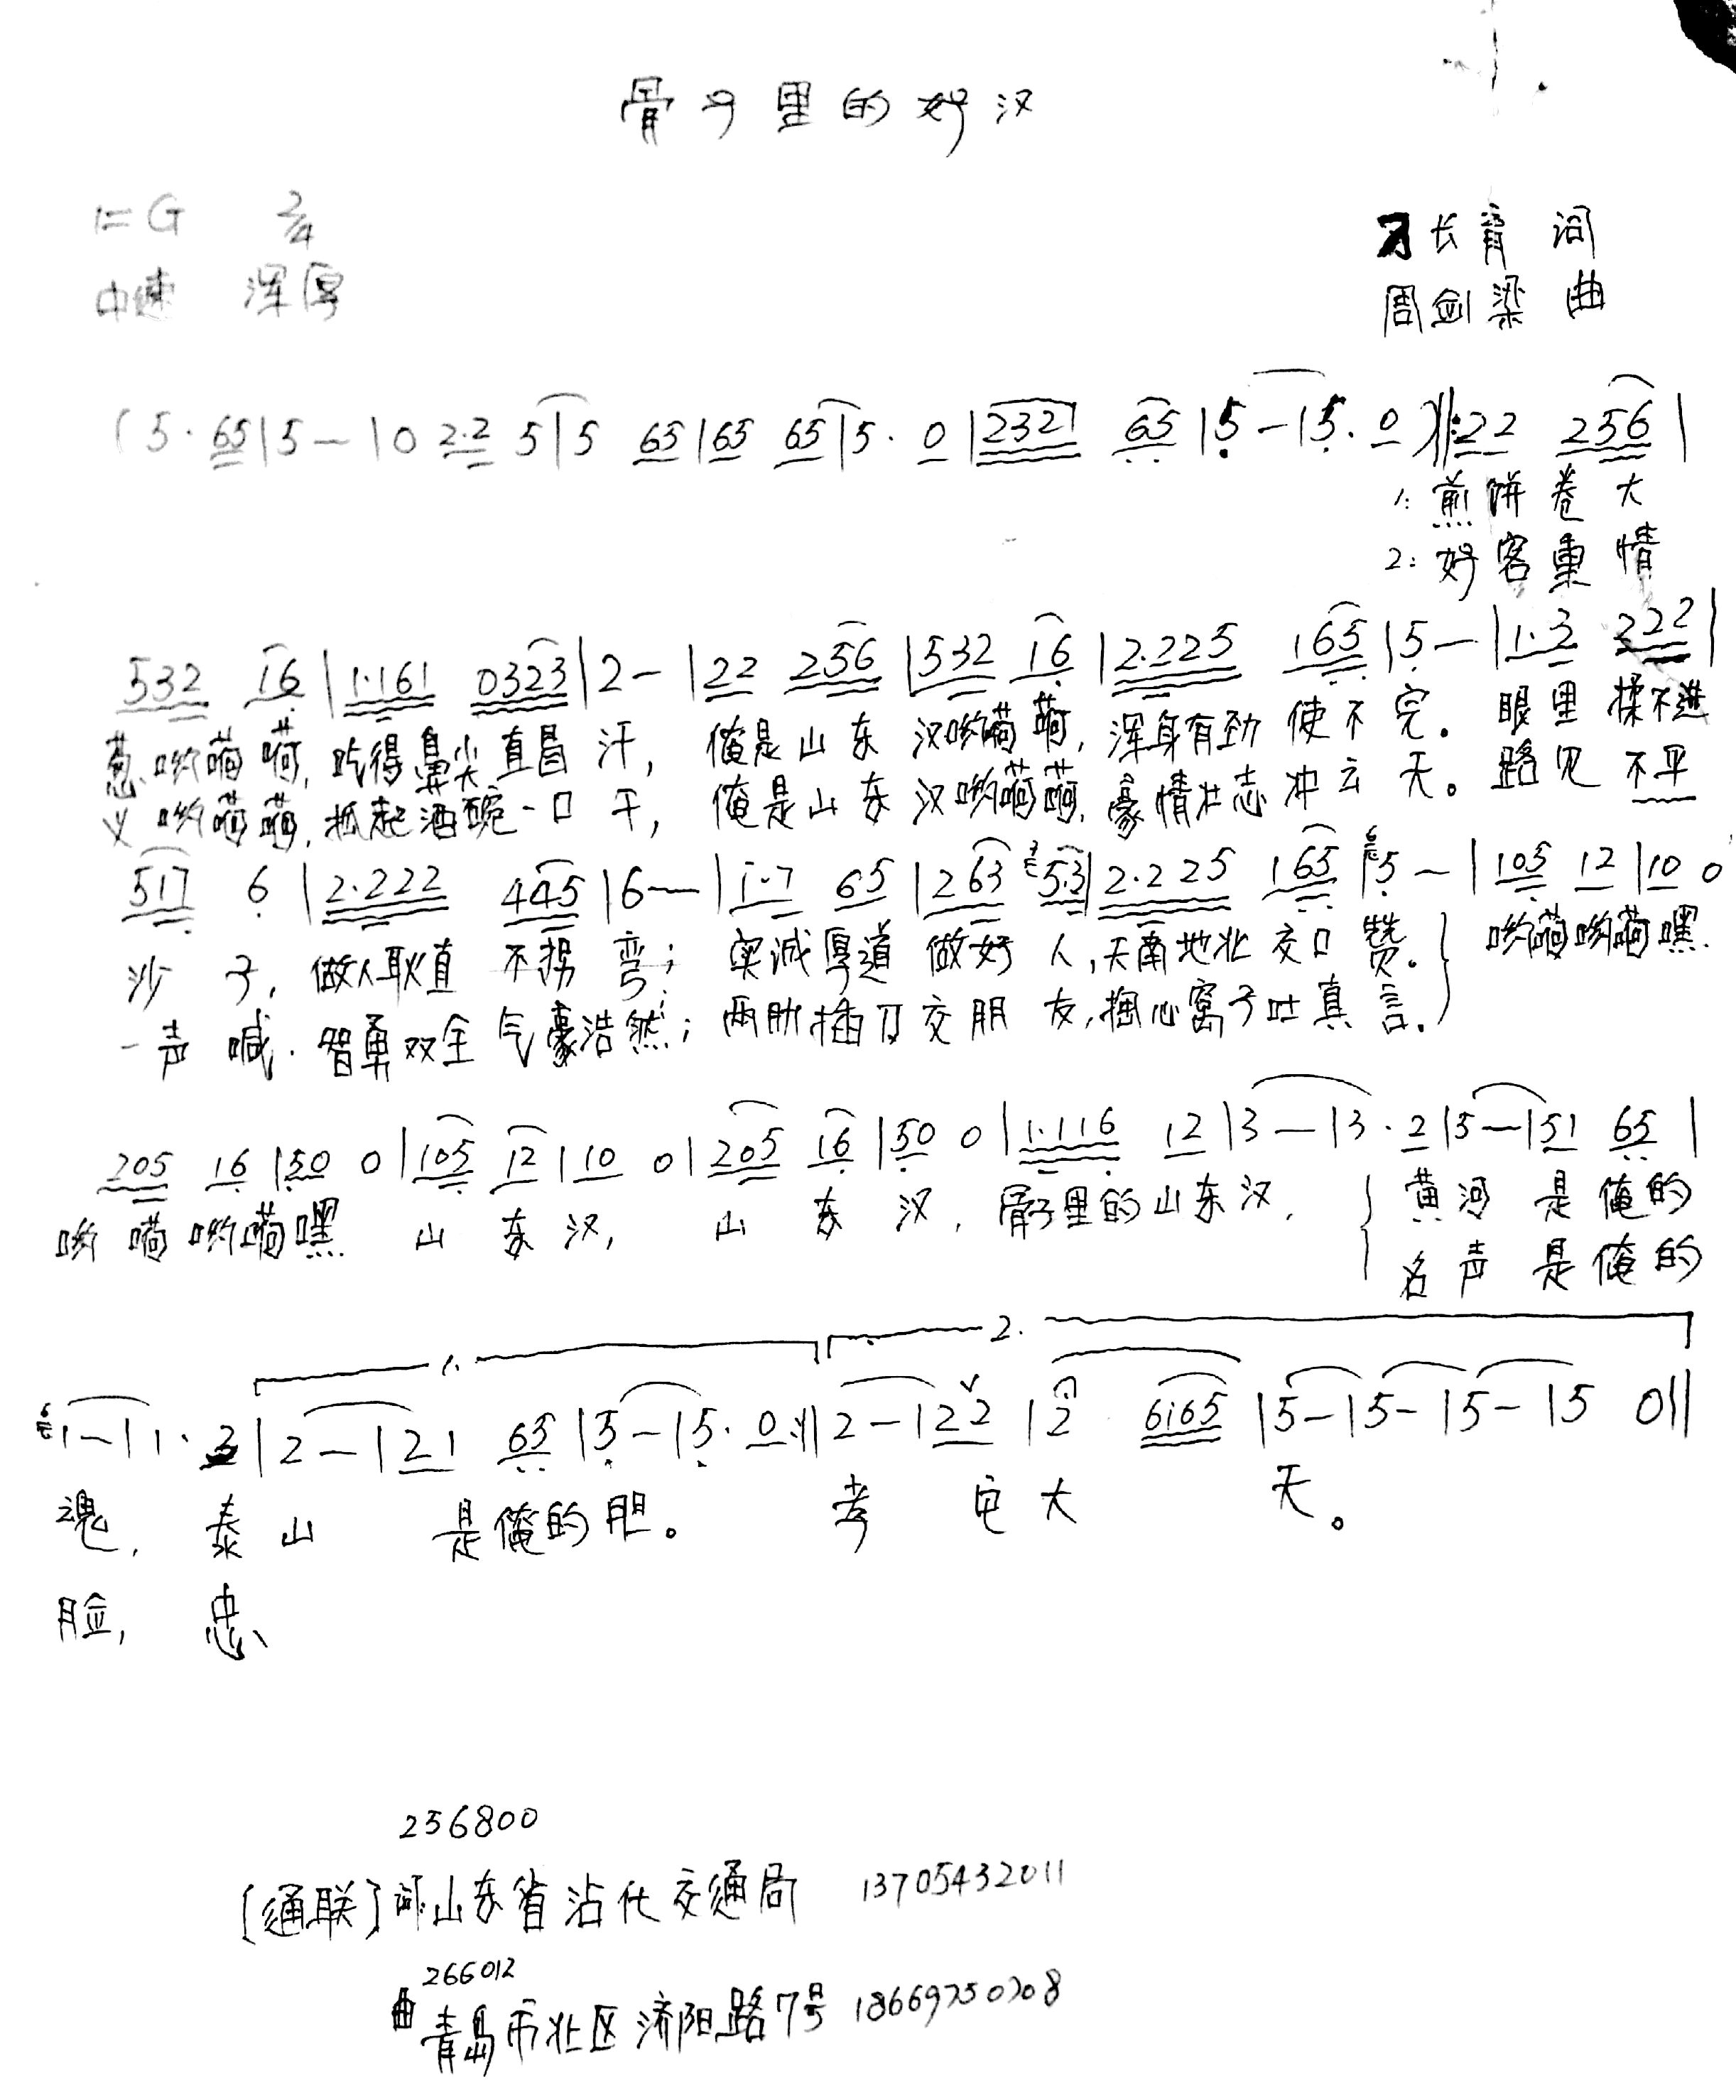 骨子里的好汉
1=G 2/4
长青 词
中速 浑厚
周剑梁 曲
(5·65|5—|02·2 5|5 65|65 65|5·0|2321 65|5—|5·0)‖:22 256|
1:煎饼卷大
2:好客重情
532 16|1·161 0323|2—|22 256|532 16|2·225 165|5—|1·2 222|
葱哟嗬嗬,吃得鼻尖直冒汗,俺是山东汉哟嗬嗬,浑身有劲使不完。眼里揉不进
义哟嗬嗬,抓起酒碗一口干,俺是山东汉哟嗬嗬,豪情壮志冲云天。路见不平
517 6|2·222 445|6—|1·7 65|263 53|2·225 165|5—|105 12|10 0
沙子,做人耿直不拐弯;实诚厚道做好人,天南地北交口赞。}哟嗬哟嗬嘿
一声喊.智勇双全气豪浩然;两肋插刀交朋友,掏心窝子吐真言.
205 16|50 0|105 12|10 0|205 16|50 0|1·116 12|3—|3·2|5—|51 65|
哟嗬哟嗬嘿 山东汉,山东汉,骨子里的山东汉,{黄河是俺的
名声是俺的
1. 2.
1—|1·3|2—|21 65|5—|5·0:‖2—|22|2 6165|5—|5—|5—|5 0‖
魂,泰山是俺的胆。 孝 大 天。
脸,忠、
256800
[通联]词:山东省沾化交通局 13705432011
266012
曲 青岛市北区济阳路7号 18669750708